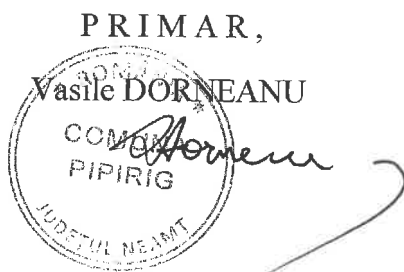 PRIMAR,
Vasile DORNEANU
ROMÂNIA *
COMUNA
PIPIRIG
JUDEȚUL NEAMȚ